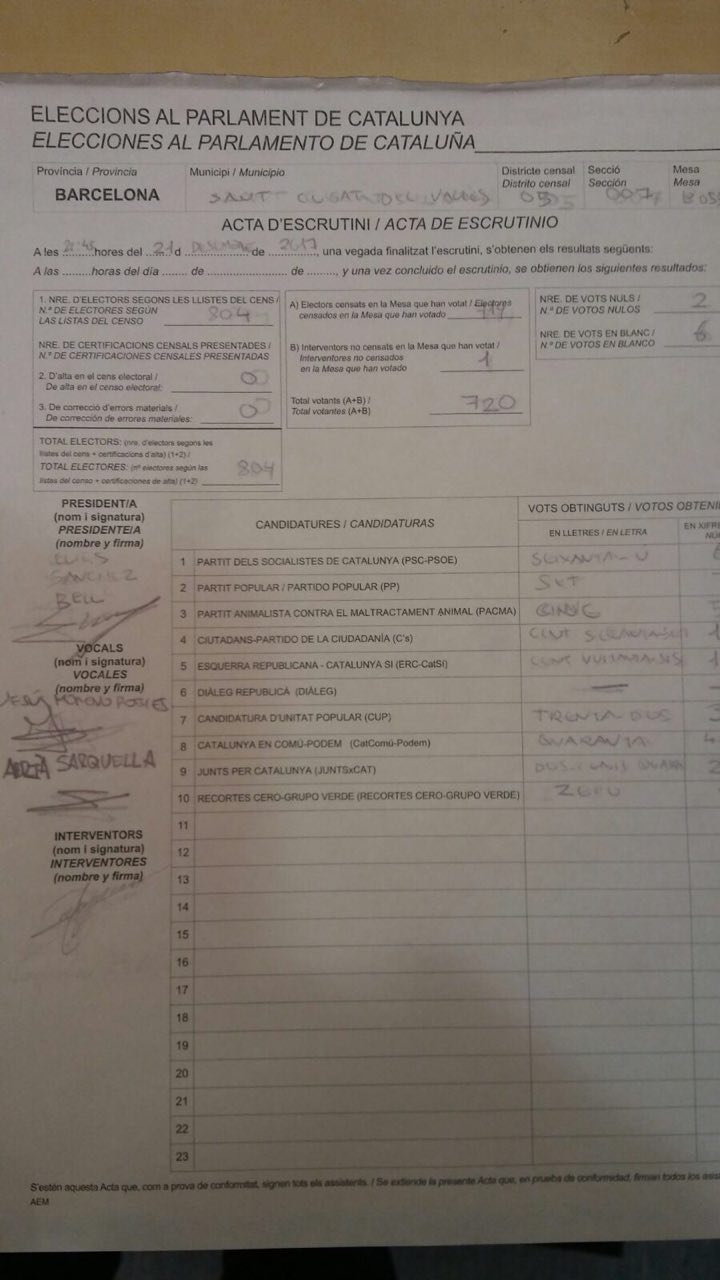 ELECCIONS AL PARLAMENT DE CATALUNYA
ELECCIONES AL PARLAMENTO DE CATALUÑA
Província / Provincia
BARCELONA
Municipi / Municipio
SANT CUGAT DEL VALLES
Districte censal
Distrito censal
Secció
Sección
Mesa
Mesa
ACTA D'ESCRUTINI / ACTA DE ESCRUTINIO
A les ........hores del 21 d DESEMBRE de 2017, una vegada finalitzat l'escrutini, s'obtenen els resultats següents:
A las ........horas del día ..... de .................... de ........, y una vez concluido el escrutinio, se obtienen los siguientes resultados:
1. NRE. D'ELECTORS SEGONS LES LLISTES DEL CENS /
N.º DE ELECTORES SEGÚN
LAS LISTAS DEL CENSO 804
NRE. DE CERTIFICACIONS CENSALS PRESENTADES /
N.º DE CERTIFICACIONES CENSALES PRESENTADAS
2. D'alta en el cens electoral /
De alta en el censo electoral: 0
3. De correcció d'errors materials /
De corrección de errores materiales: 0
TOTAL ELECTORS: (nre. d'electors segons les
llistes del cens + certificacions d'alta) (1+2) /
TOTAL ELECTORES: (nº electores según las
listas del censo + certificaciones de alta) (1+2) 804
A) Electors censats en la Mesa que han votat / Electores
censados en la Mesa que han votado 719
B) Interventors no censats en la Mesa que han votat /
Interventores no censados
en la Mesa que han votado 1
Total votants (A+B) /
Total votantes (A+B) 720
NRE. DE VOTS NULS /
N.º DE VOTOS NULOS 2
NRE. DE VOTS EN BLANC /
N.º DE VOTOS EN BLANCO 6
PRESIDENT/A
(nom i signatura)
PRESIDENTE/A
(nombre y firma)
LLUIS
SANCHEZ
BELL
VOCALS
(nom i signatura)
VOCALES
(nombre y firma)
SARQUELLA
INTERVENTORS
(nom i signatura)
INTERVENTORES
(nombre y firma)
CANDIDATURES / CANDIDATURAS
VOTS OBTINGUTS / VOTOS OBTENI
EN LLETRES / EN LETRA
EN XIFRE
1 PARTIT DELS SOCIALISTES DE CATALUNYA (PSC-PSOE) SEIXANTA-U
2 PARTIT POPULAR / PARTIDO POPULAR (PP) SET
3 PARTIT ANIMALISTA CONTRA EL MALTRACTAMENT ANIMAL (PACMA) CINC
4 CIUTADANS-PARTIDO DE LA CIUDADANÍA (C's) CENT
5 ESQUERRA REPUBLICANA - CATALUNYA SÍ (ERC-CatSí) CENT VUITANTA-SIS
6 DIÀLEG REPUBLICÀ (DIÀLEG) —
7 CANDIDATURA D'UNITAT POPULAR (CUP) TRENTA DOS
8 CATALUNYA EN COMÚ-PODEM (CatComú-Podem) QUARANTA
9 JUNTS PER CATALUNYA (JUNTSxCAT) DOS-CENTS QUARA
10 RECORTES CERO-GRUPO VERDE (RECORTES CERO-GRUPO VERDE) ZERO
11
12
13
14
15
16
17
18
19
20
21
22
23
S'estén aquesta Acta que, com a prova de conformitat, signen tots els assistents. / Se extiende la presente Acta que, en prueba de conformidad, firman todos los asis
AEM